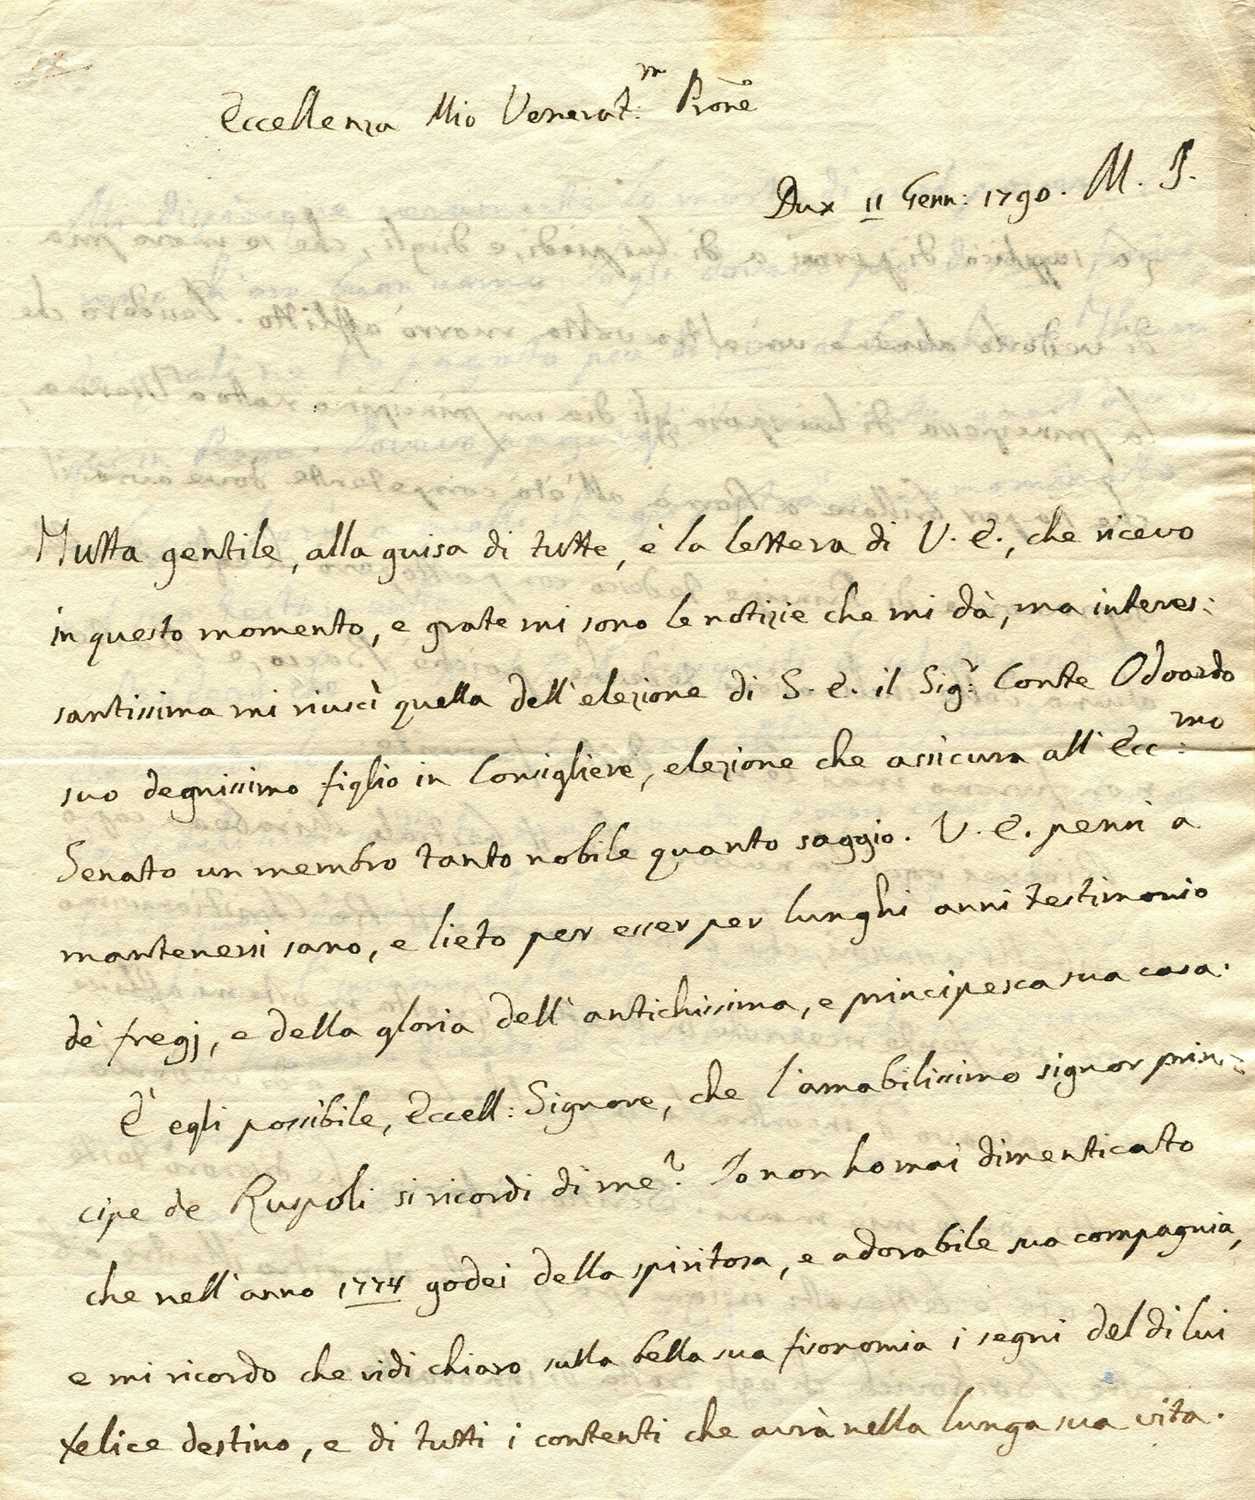 Eccellenza Mio Venerat:m Prone
Dux 11 Genn: 1790. M. P.
Tutta gentile, alla guisa di tutte, è la lettera di V. E., che ricevo
in questo momento, e grate mi sono le notizie che mi dà, ma interes:
santissima mi riuscì quella dell'elezione di S. E. il Sig.r Conte Odoardo
suo degnissimo figlio in Consigliere, elezione che assicura all'Ecc:mo
Senato un membro tanto nobile quanto saggio. V. E. pensi a
mantenersi sano, e lieto per esser per lunghi anni testimonio
de' fregj, e della gloria dell'antichissima, e principesca sua casa.
È egli possibile, Eccell: Signore, che l'amabilissimo signor prin:
cipe de Ruspoli si ricordi di me? Io non ho mai dimenticato
che nell'anno 1774 godei della spiritosa, e adorabile sua compagnia,
e mi ricordo che vidi chiaro sulla bella sua fisonomia i segni del di lui
felice destino, e di tutti i contenti che avrà nella lunga sua vita.